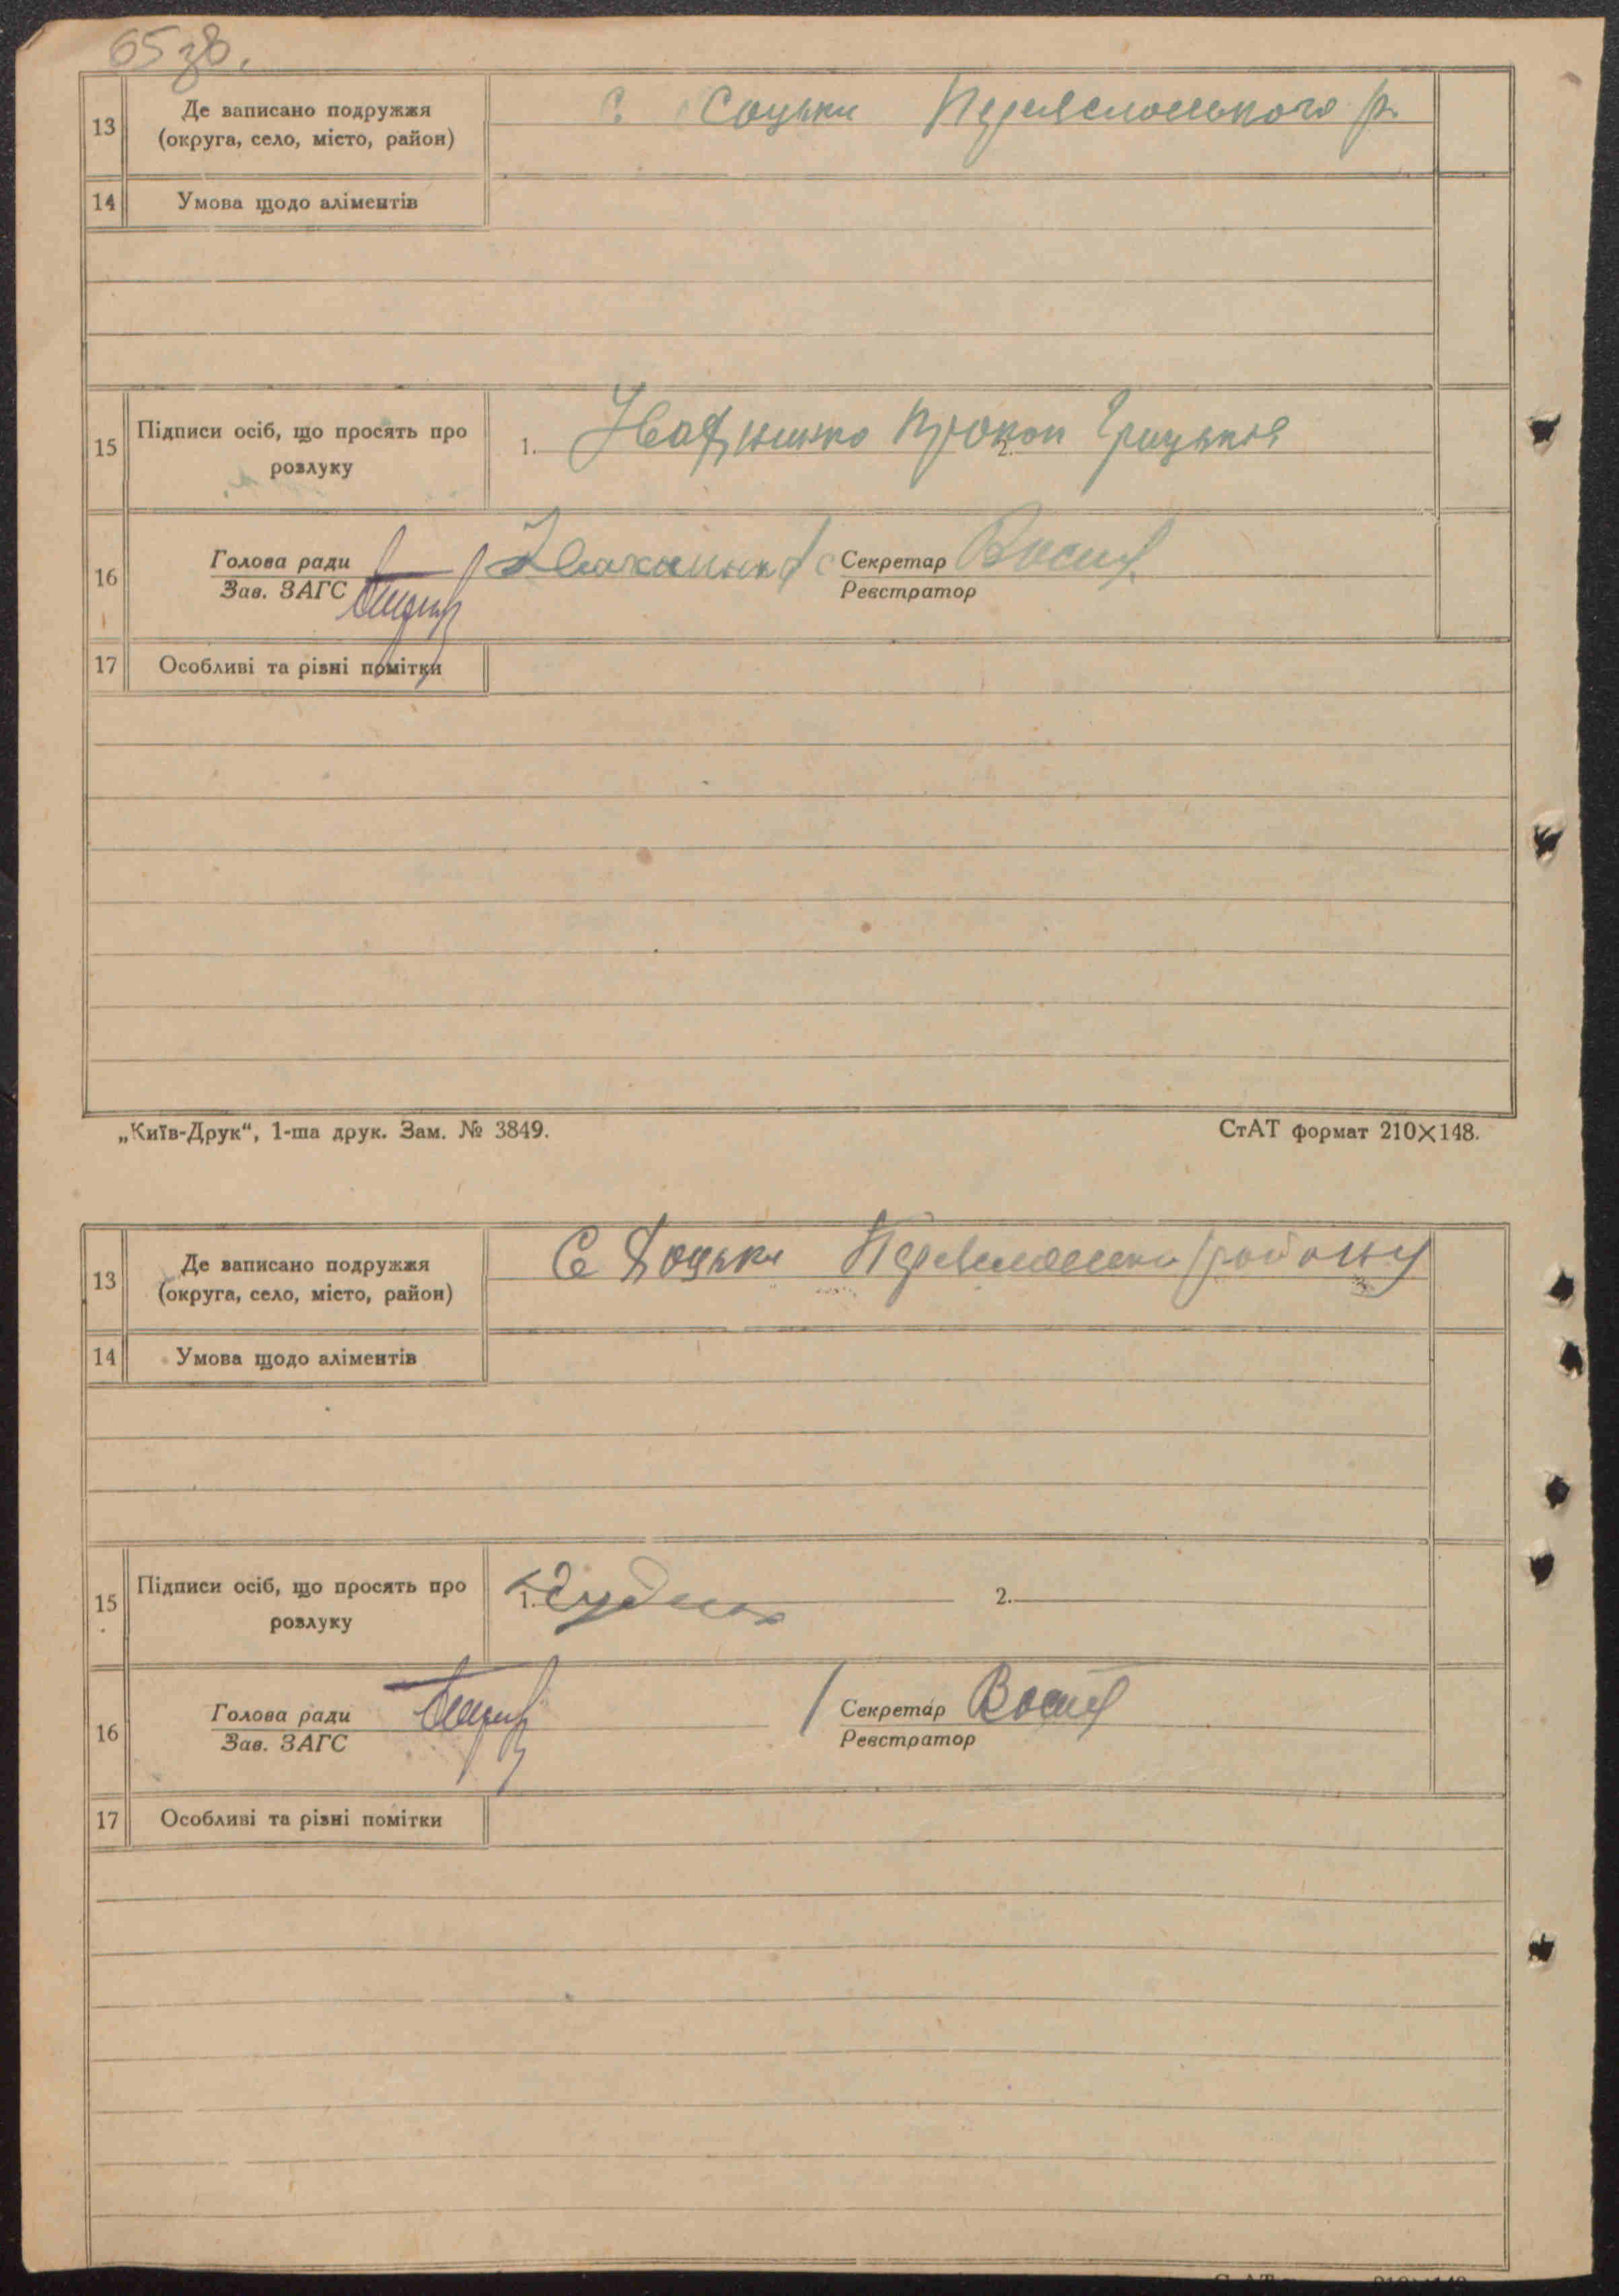 65 зв.
13
Де записано подружжя
(округа, село, місто, район)
с. Соцьки Переяславського р.
14
Умова щодо аліментів
15
Підписи осіб, що просять про
розлуку
1. Прокоп Грицьків
2.
16
Голова ради
Зав. ЗАГС
Секретар
Реєстратор
17
Особливі та різні помітки
„Київ-Друк“, 1-ша друк. Зам. № 3849.
СтАТ формат 210×148.
13
Де записано подружжя
(округа, село, місто, район)
С району
14
Умова щодо аліментів
15
Підписи осіб, що просять про
розлуку
1.
2.
16
Голова ради
Зав. ЗАГС
Секретар
Реєстратор
17
Особливі та різні помітки